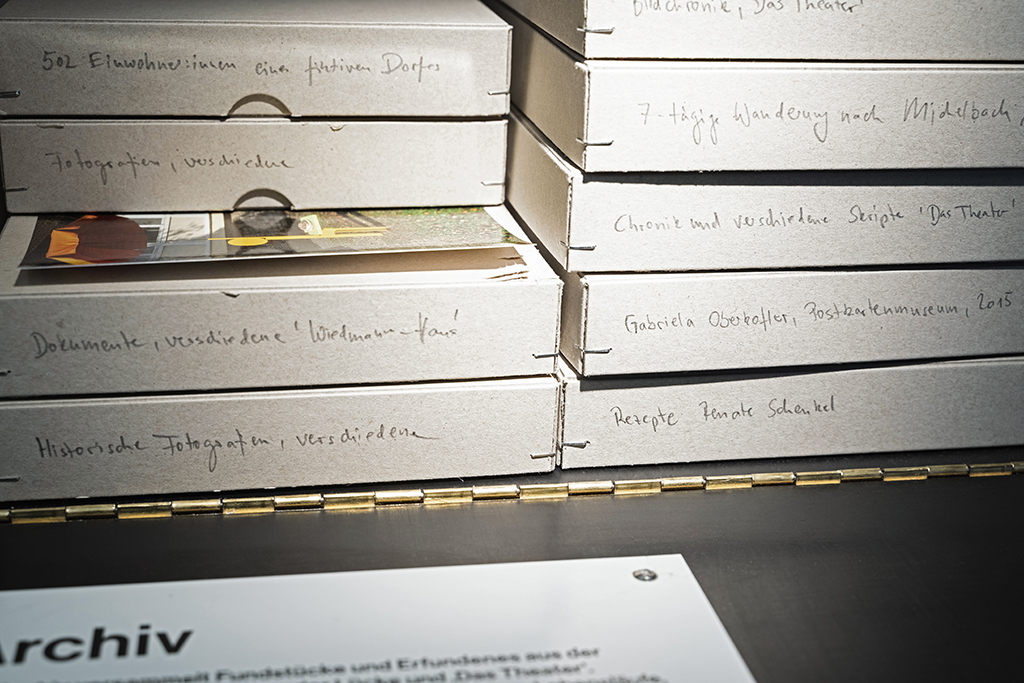 502 Einwohner:innen eines fiktiven Dorfes
Fotografien, verschiedene
Dokumente, verschiedene 'Wiedmann-Haus'
Historische Fotografien, verschiedene
Bildchronik, 'Das Theater'
7-tägige Wanderung nach Michelbach,
Chronik und verschiedene Skripte 'Das Theater'
Gabriela Oberkofler, Postkartenmuseum, 2015
Rezepte Renate Schenkel
Archiv
Fundstücke und Erfundenes aus der
und ‚Das Theater'.